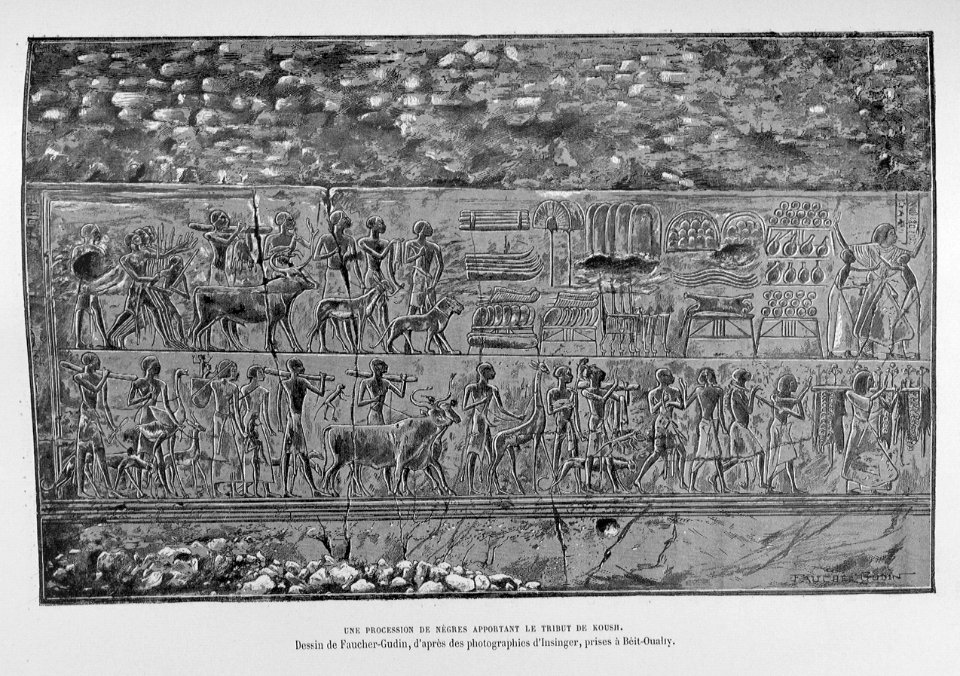 FAUCHER-GUDIN
UNE PROCESSION DE NÈGRES APPORTANT LE TRIBUT DE KOUSH.
Dessin de Faucher-Gudin, d'après des photographies d'Insinger, prises à Béit-Oually.